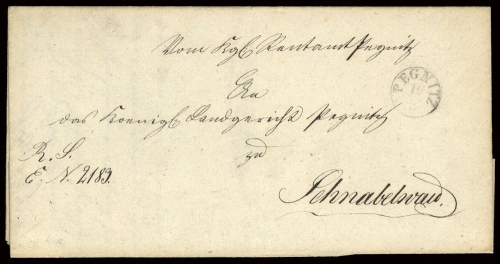 Vom Kgl Rentamt Pegnitz
An
das Koenigl Landgericht Pegnitz
zu
Schnabelwaid.
R. S.
E. N. 2183.
PEGNITZ